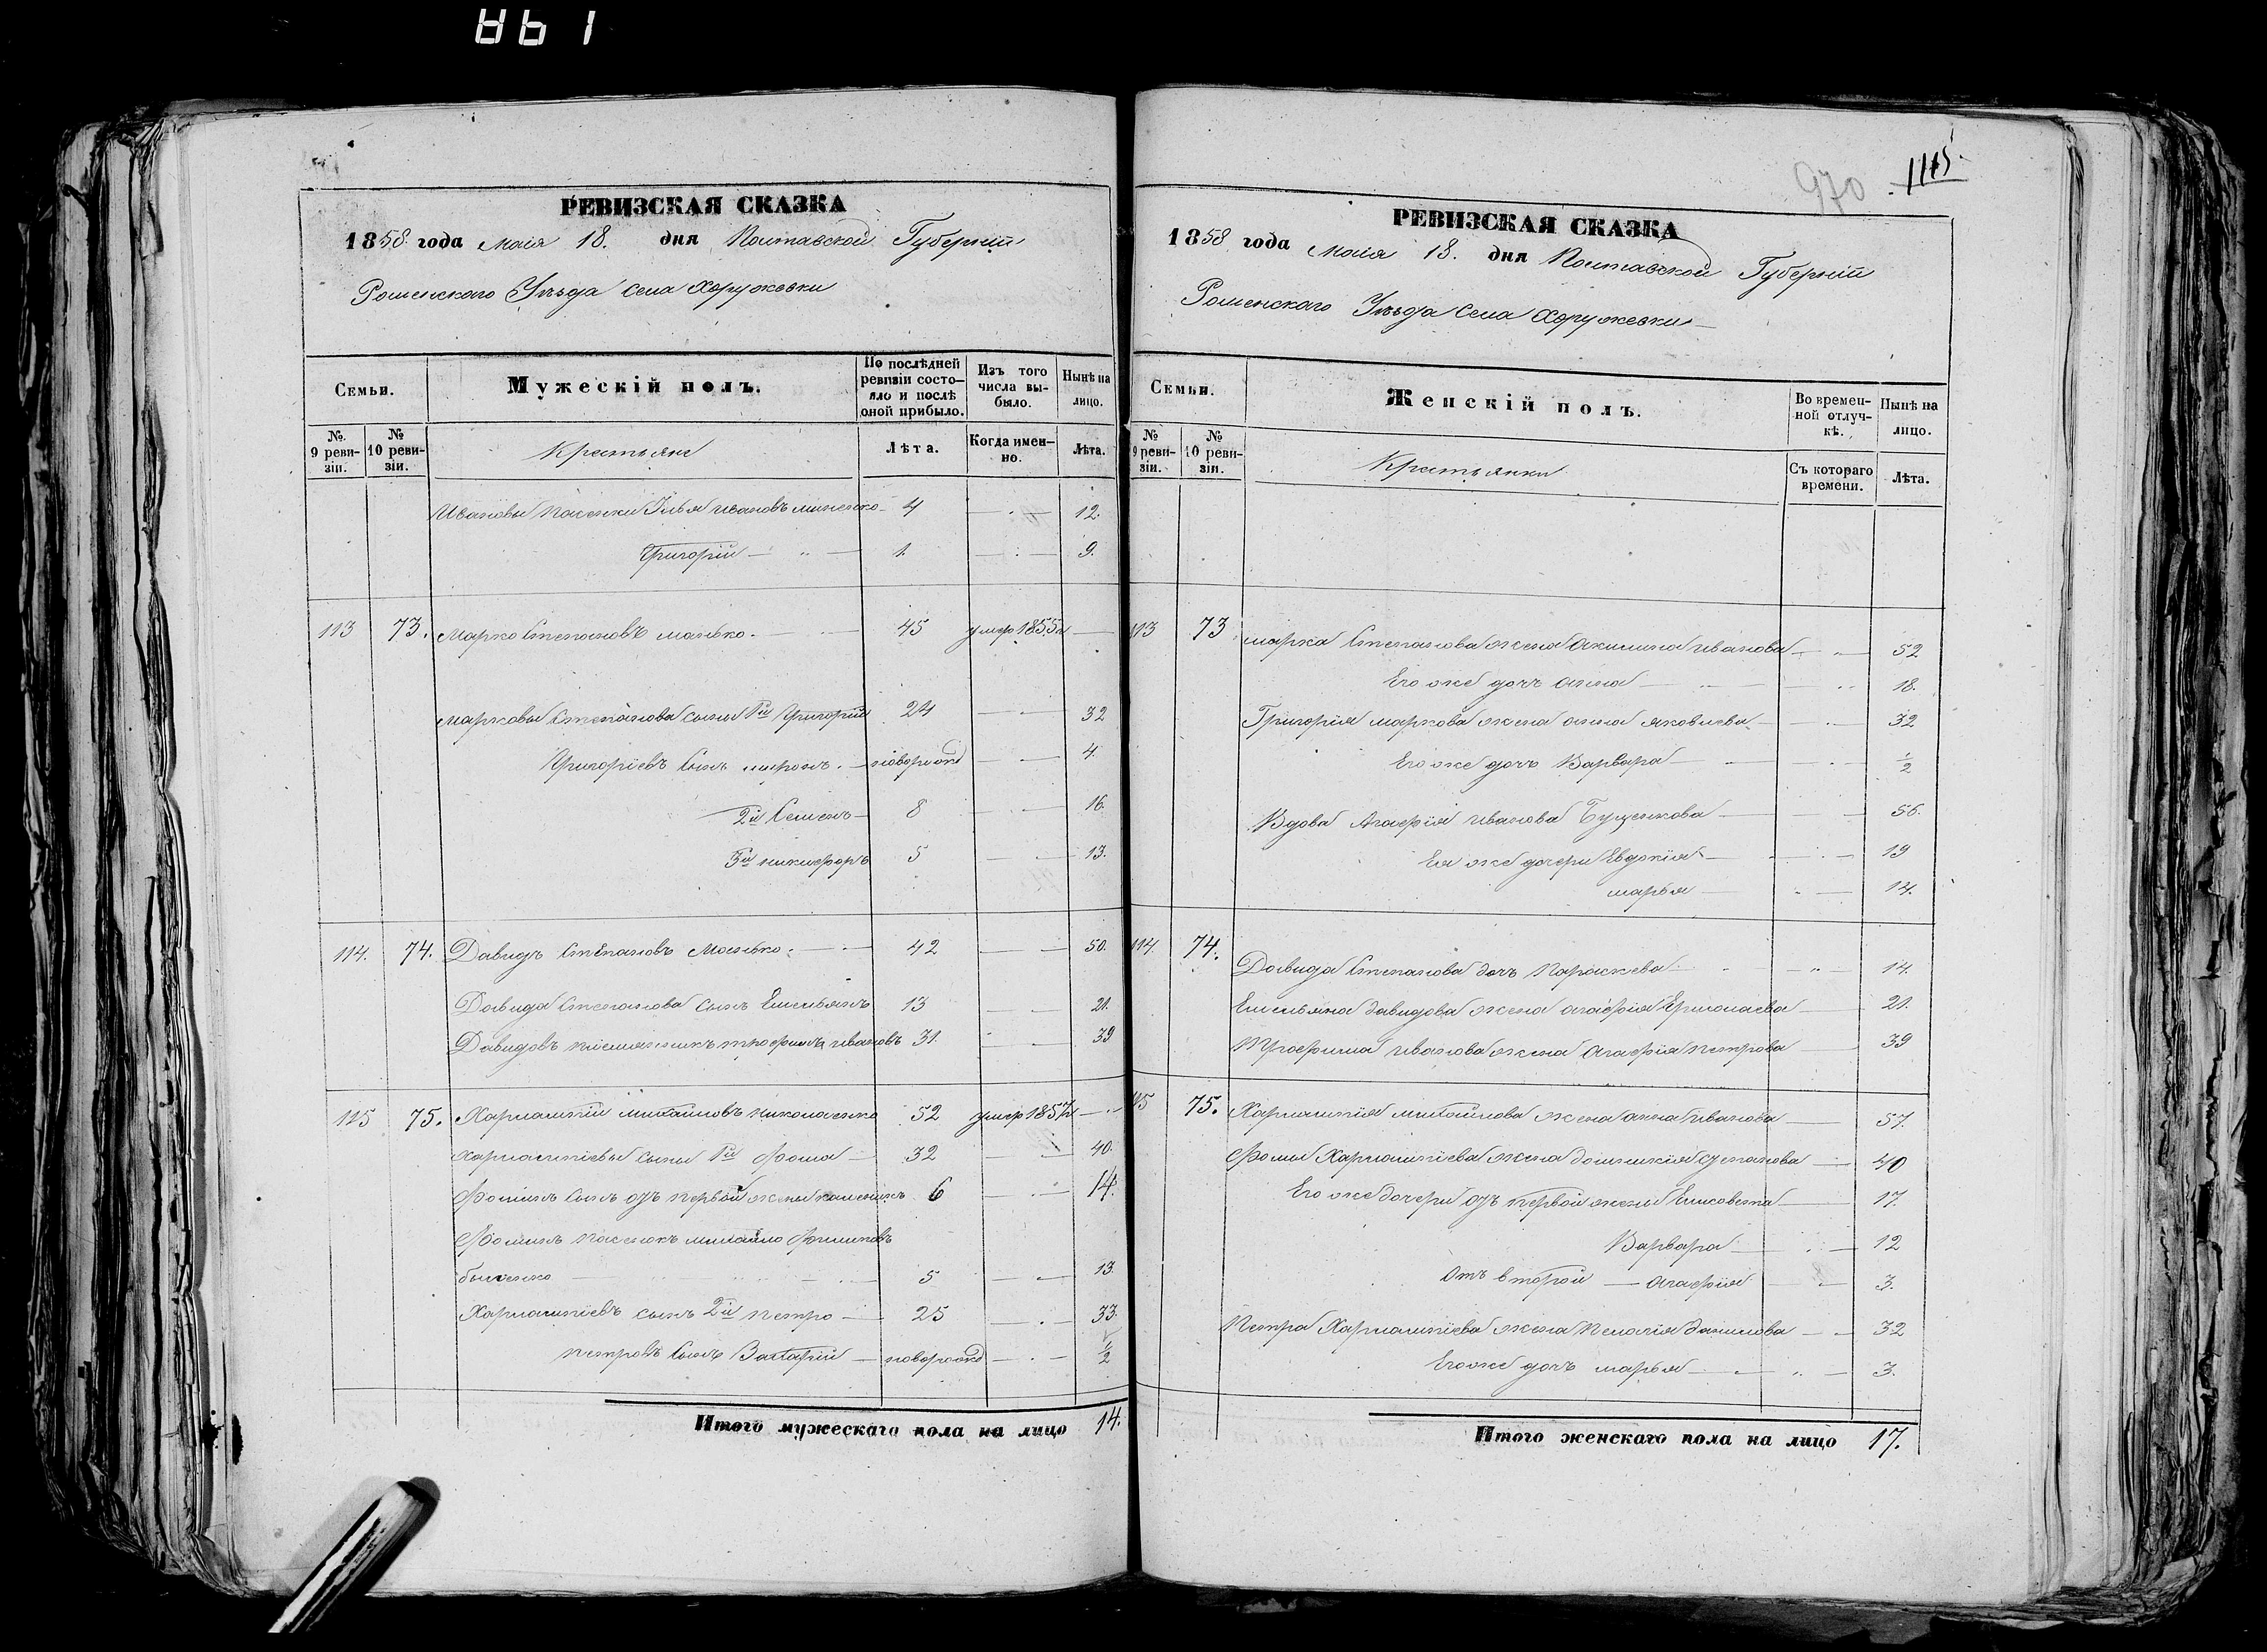 1961
РЕВИЗСКАЯ СКАЗКА
1858 года Маія 18. дня Полтавской Губерніи
Роменскаго Уѣзда Села Хоружевки
Семьи.
Мужескій полъ.
По послѣдней ревизіи состояло и послѣ оной прибыло.
Изъ того числа выбыло.
Нынѣ на лицо.
№ 9 ревизіи.
№ 10 ревизіи.
Крестьяне
Лѣта.
Когда именно.
Лѣта.
Ивановы пасенки Илья Ивановъ 4 12.
Григорій 1. 9.
113 73. Марко Степановъ Манько. 45 умер 1855 г
Марковы Степанова сыны 1й Григорій 24 32
Григоріевъ сынъ Миронъ. новорожд 4.
2й Семенъ 8 16.
3й Никифоръ 5 13.
114. 74. Давидъ Степановъ Манько. 42 50.
Давида Степанова сынъ Емельянъ 13 21.
Давидовъ племянникъ Трофимъ Ивановъ 31. 39
115 75. Харлампій Михайловъ Николаенко 52 умер 1857 г
Харлампіевы сыны 1й Фома 32 40.
Фоминъ сынъ отъ первой жены 6 14.
Фоминъ пасенокъ Михайло
5 13.
Харлампіевъ сынъ 2й Петро 25 33.
Петровъ сынъ Захарій новорожд 1/2
Итого мужескаго пола на лицо 14.
970 1115
РЕВИЗСКАЯ СКАЗКА
1858 года Маія 18. дня Полтавской Губерніи
Роменскаго Уѣзда Села Хоружевки
Семьи.
Женскій полъ.
Во временной отлучкѣ.
Нынѣ на лицо.
№ 9 ревизіи.
№ 10 ревизіи.
Крестьянки
Съ котораго времени.
Лѣта.
113 73 Марка Степанова жена Акилина Иванова 52
Его же дочь Анна 18.
Григорія Маркова жена Анна Яковлева 32
Его же дочь Варвара 1/2
Вдова Агафія Иванова 56.
Ея же дочери Евдокія 19
Марья 14.
114. 74. Давида Степанова дочь Параскева 14.
Емельяна Давидова жена Агафія Ермолаева 21.
Трофима Иванова жена Агафія Петрова 39
115 75. Харлампія Михайлова жена Анна Иванова 57.
Фомы Харлампіева жена Домникія 40
Его же дочери отъ первой жены Елисавета 17.
Варвара 12
Отъ второй Агафія 3.
Петра Харлампіева жена Пелагія Данилова 32
Его же дочь Марья 3.
Итого женскаго пола на лицо 17.